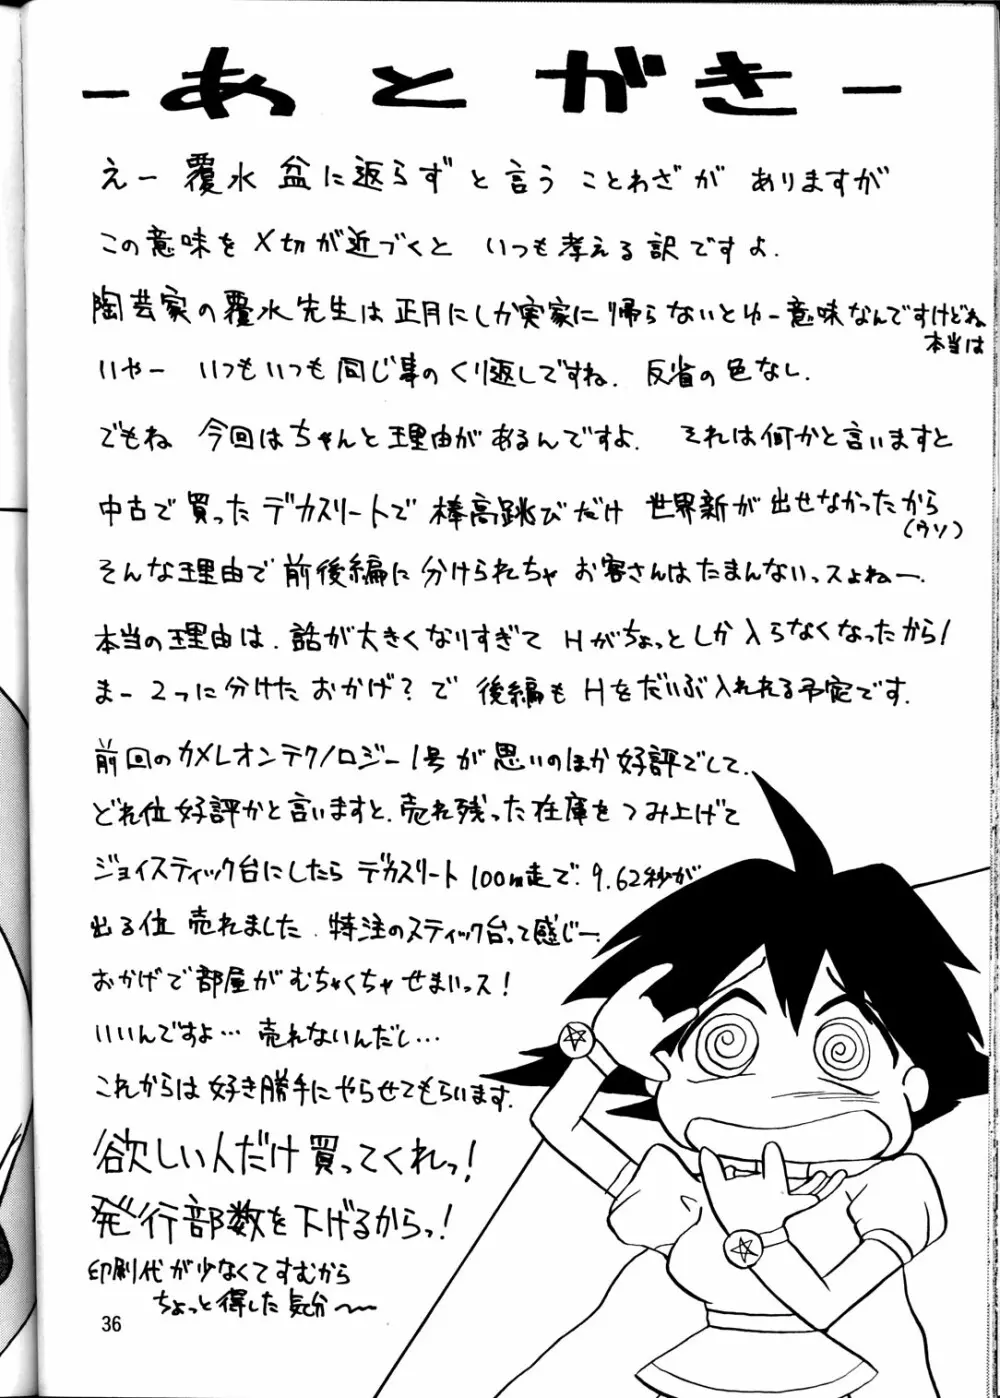 -あとがき-
えー 覆水 盆に返らず と言う ことわざが ありますが
この意味を 〆切が近づくと いつも考える訳ですよ.
陶芸家の覆水先生は正月にしか実家に帰らないとゆー意味なんですけどね
本当は
いやー いつもいつも同じ事のくり返しですね. 反省の色なし.
でもね 今回はちゃんと理由があるんですよ. それは何かと言いますと
中古で買ったデカスリートで 棒高跳びだけ 世界新が出せなかったから
(ウソ)
そんな理由で前後編に分けられちゃ お客さんはたまんないっスよねー.
本当の理由は、話が大きくなりすぎて Hがちょっとしか入らなくなったから!
まー2つに分けた おかげ?で 後編も Hをだいぶ入れれる予定です.
前回のカメレオンテクノロジー1号が思いのほか好評でして、
どれ位好評かと言いますと、売れ残った在庫をつみ上げて
ジョイスティック台にしたら デカスリート100m走で、9.62秒が
出る位 売れました. 特注のスティック台って感じー.
おかげで部屋がむちゃくちゃせまいっス!
いいんですよ… 売れないんだし…
これからは 好き勝手にやらせてもらいます.
欲しい人だけ買ってくれっ!
発行部数を下げるからっ!
印刷代が少なくてすむから
ちょっと得した気分〜〜
36